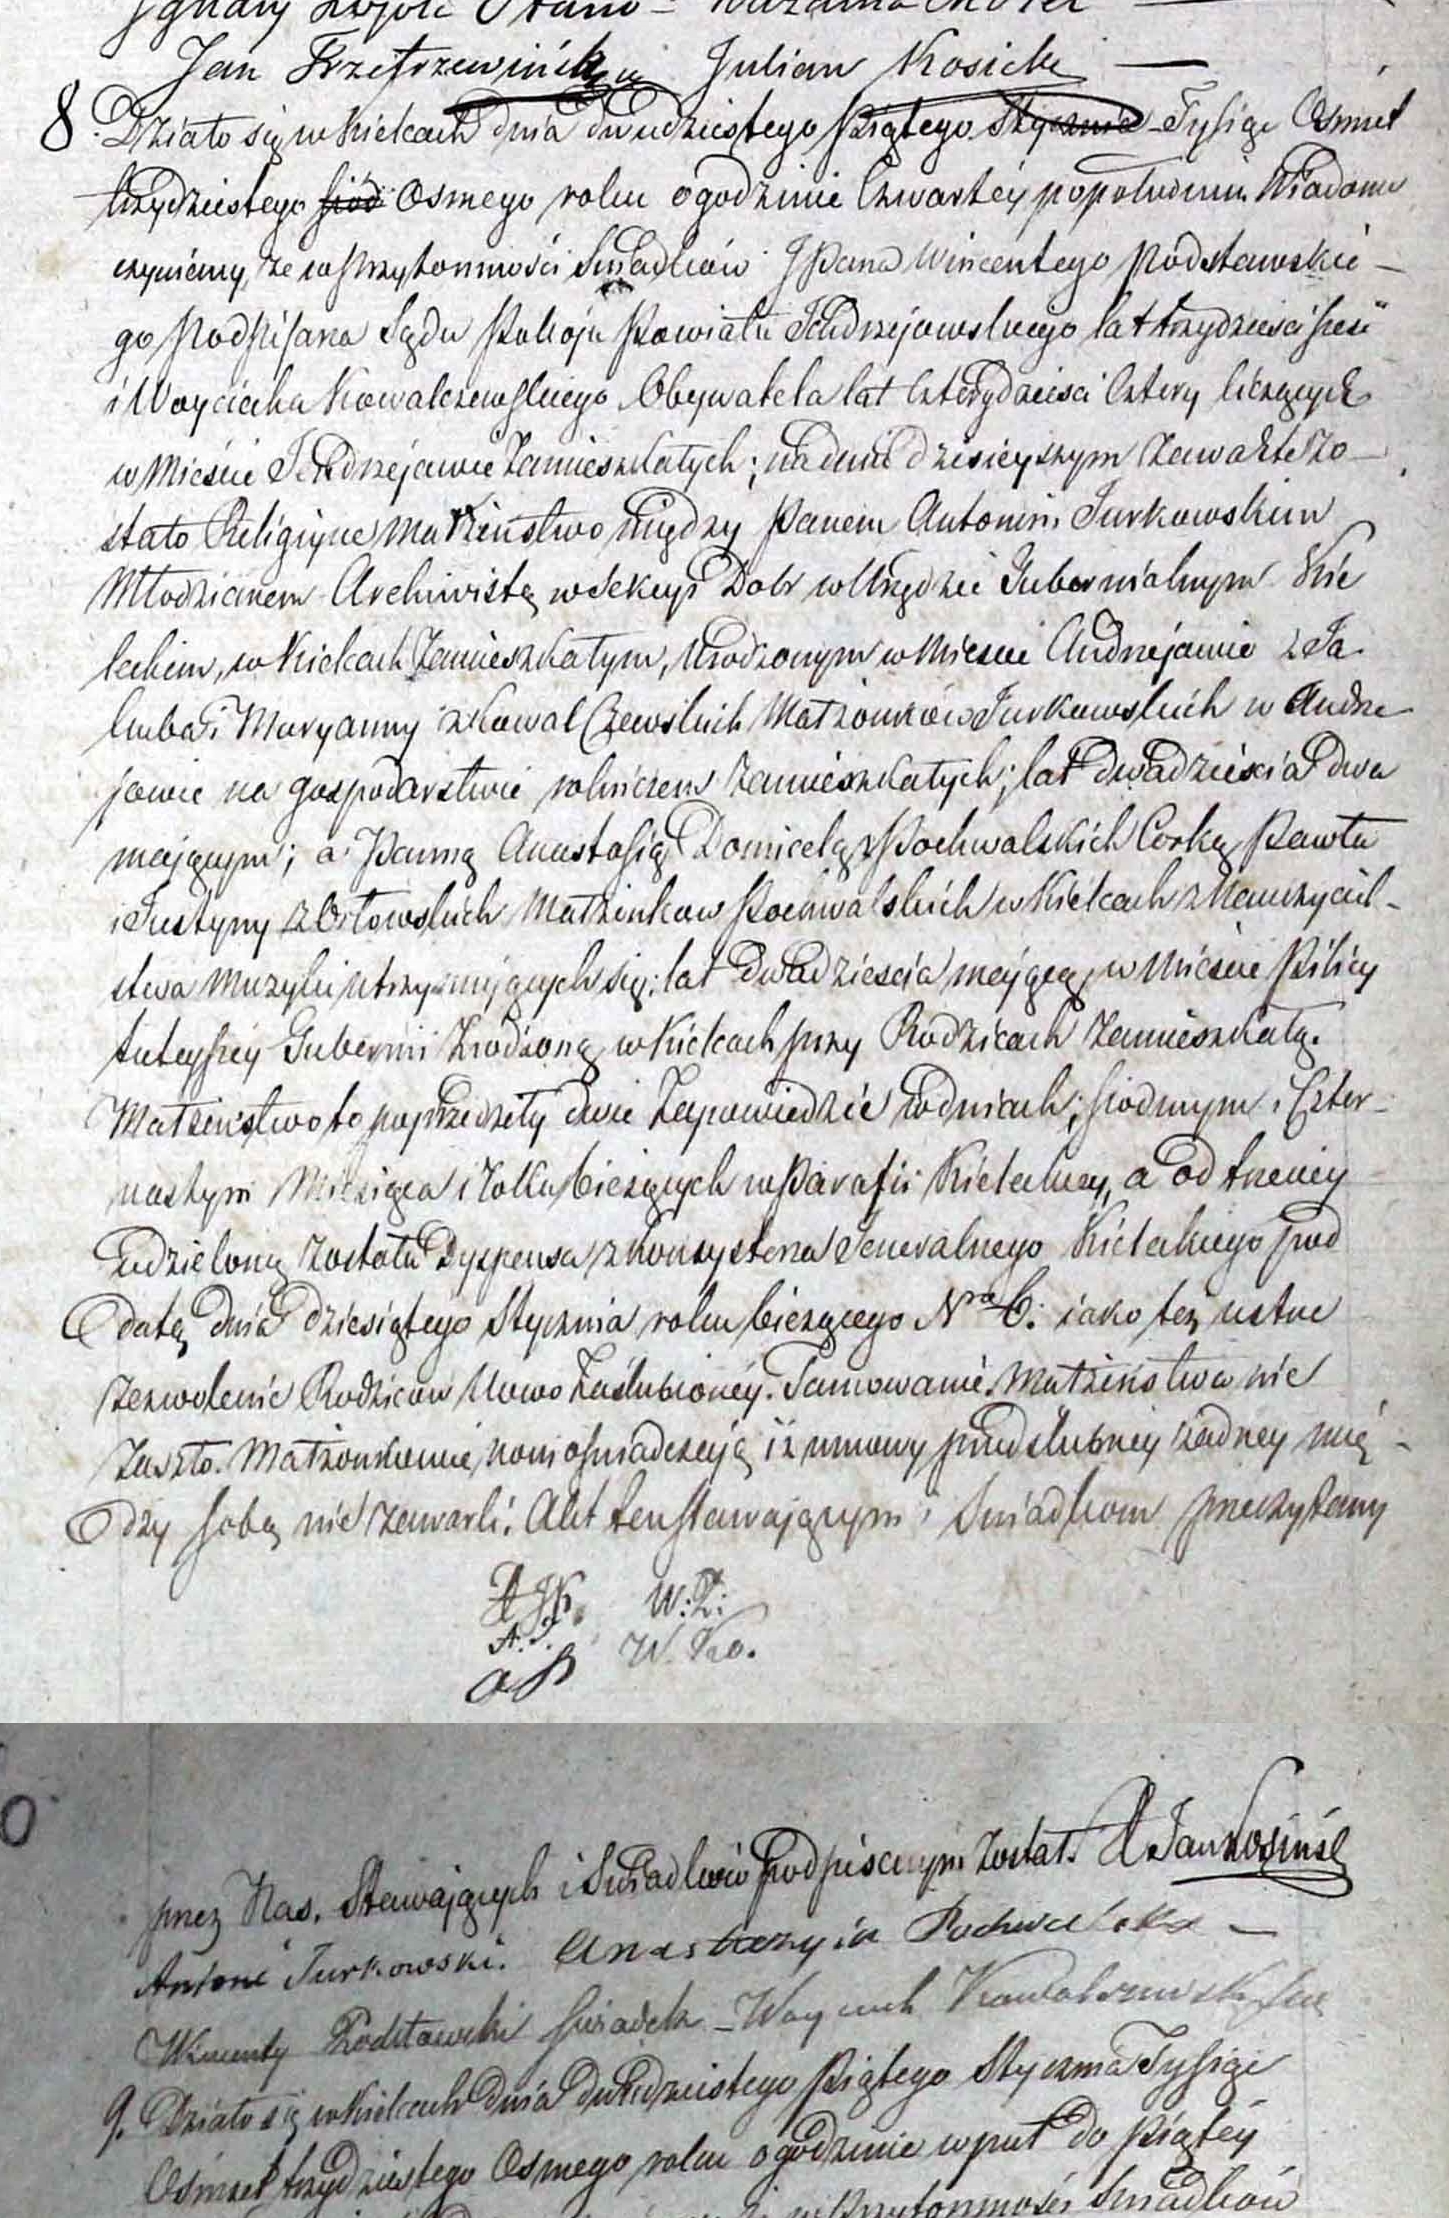 Jan Trzetrzewiński Julian Kosicki
8. Działo się w Kielcach dnia dwudziestego Piątego Stycznia Tysiąc Osmset
trzydziestego siód Osmego roku o godzinie Czwartéy popołudniu. Wiadomo
czyniemy, że w przytomności Swiadków JPana Wincentego Podstawskie-
go Podpisarza Sądu Pokoju Powiatu Jędrzejowskiego lat trzydzieści sześć
i Woyciecha Kowalczewskiego Obywatela lat Czterydzieści Cztery liczących
w Mieście Jędrzejowie Zamieszkałych; na dniu dzisieyszym Zawarte Zo-
stało Religijne Małżeństwo między Panem Antonim Jurkowskim
Młodzianem Archiwistą w Sekcyi Dobr w Urzędzie Gubernialnym Kie
leckim, w Kielcach Zamieszkałym, Urodzonym w Mieście Andrzejowie z Ja
kuba i Maryanny z Kowalczewskich Małżonków Jurkowskich w Andrze
jowie na gospodarstwie rolniczem Zamieszkałych; lat dwadzieścia dwa
mającym; a Panną Anastasią Domicelą Pochwalskich Corką Pawła
i Justyny z Orłowskich Małżonkow Pochwalskich w Kielcach z Nauczyciel-
stwa Muzyki utrzymujących się; lat dwadzieścia mającą, w Mieście Pilicy
tuteyszey Gubernii Zrodzoną w Kielcach przy Rodzicach Zamieszkałą.
Małżeństwo to poprzedziły dwie Zapowiedzie w dniach; siodmym i Czter-
nastym Miesiąca i roku bieżących w Parafii Kieleckiey, a od trzeciey
udzieloną została Dyspensa z Konsystorza Jeneralnego Kieleckiego pod
datą dnia dziesiątego Stycznia roku bieżącego Nro 6. iako też ustne
zezwolenie Rodzicow Nowo Zaślubionéy. Tamowanie Małżeństwa nie
Zaszło. Małżonkowie nowi oświadczają iż umowy przedślubney żadney mię-
dzy sobą nie zawarli. Akt ten stawającym i Swiadkom przeczytany
W. Ko.
przez Nas, Stawających i Swiadków podpisanym został.
Antoni Jurkowski. Anastazyia Pochwalska
Wincenty Podstawski swiadek - Woyciech Kowalczewski
9. Działo się w Kielcach dnia dwudziestego Piątego Stycznia Tysiąc
Ośmset trzydziestego Osmego roku o godzinie wpuł do Piątéy
w Przytomności Swiadków